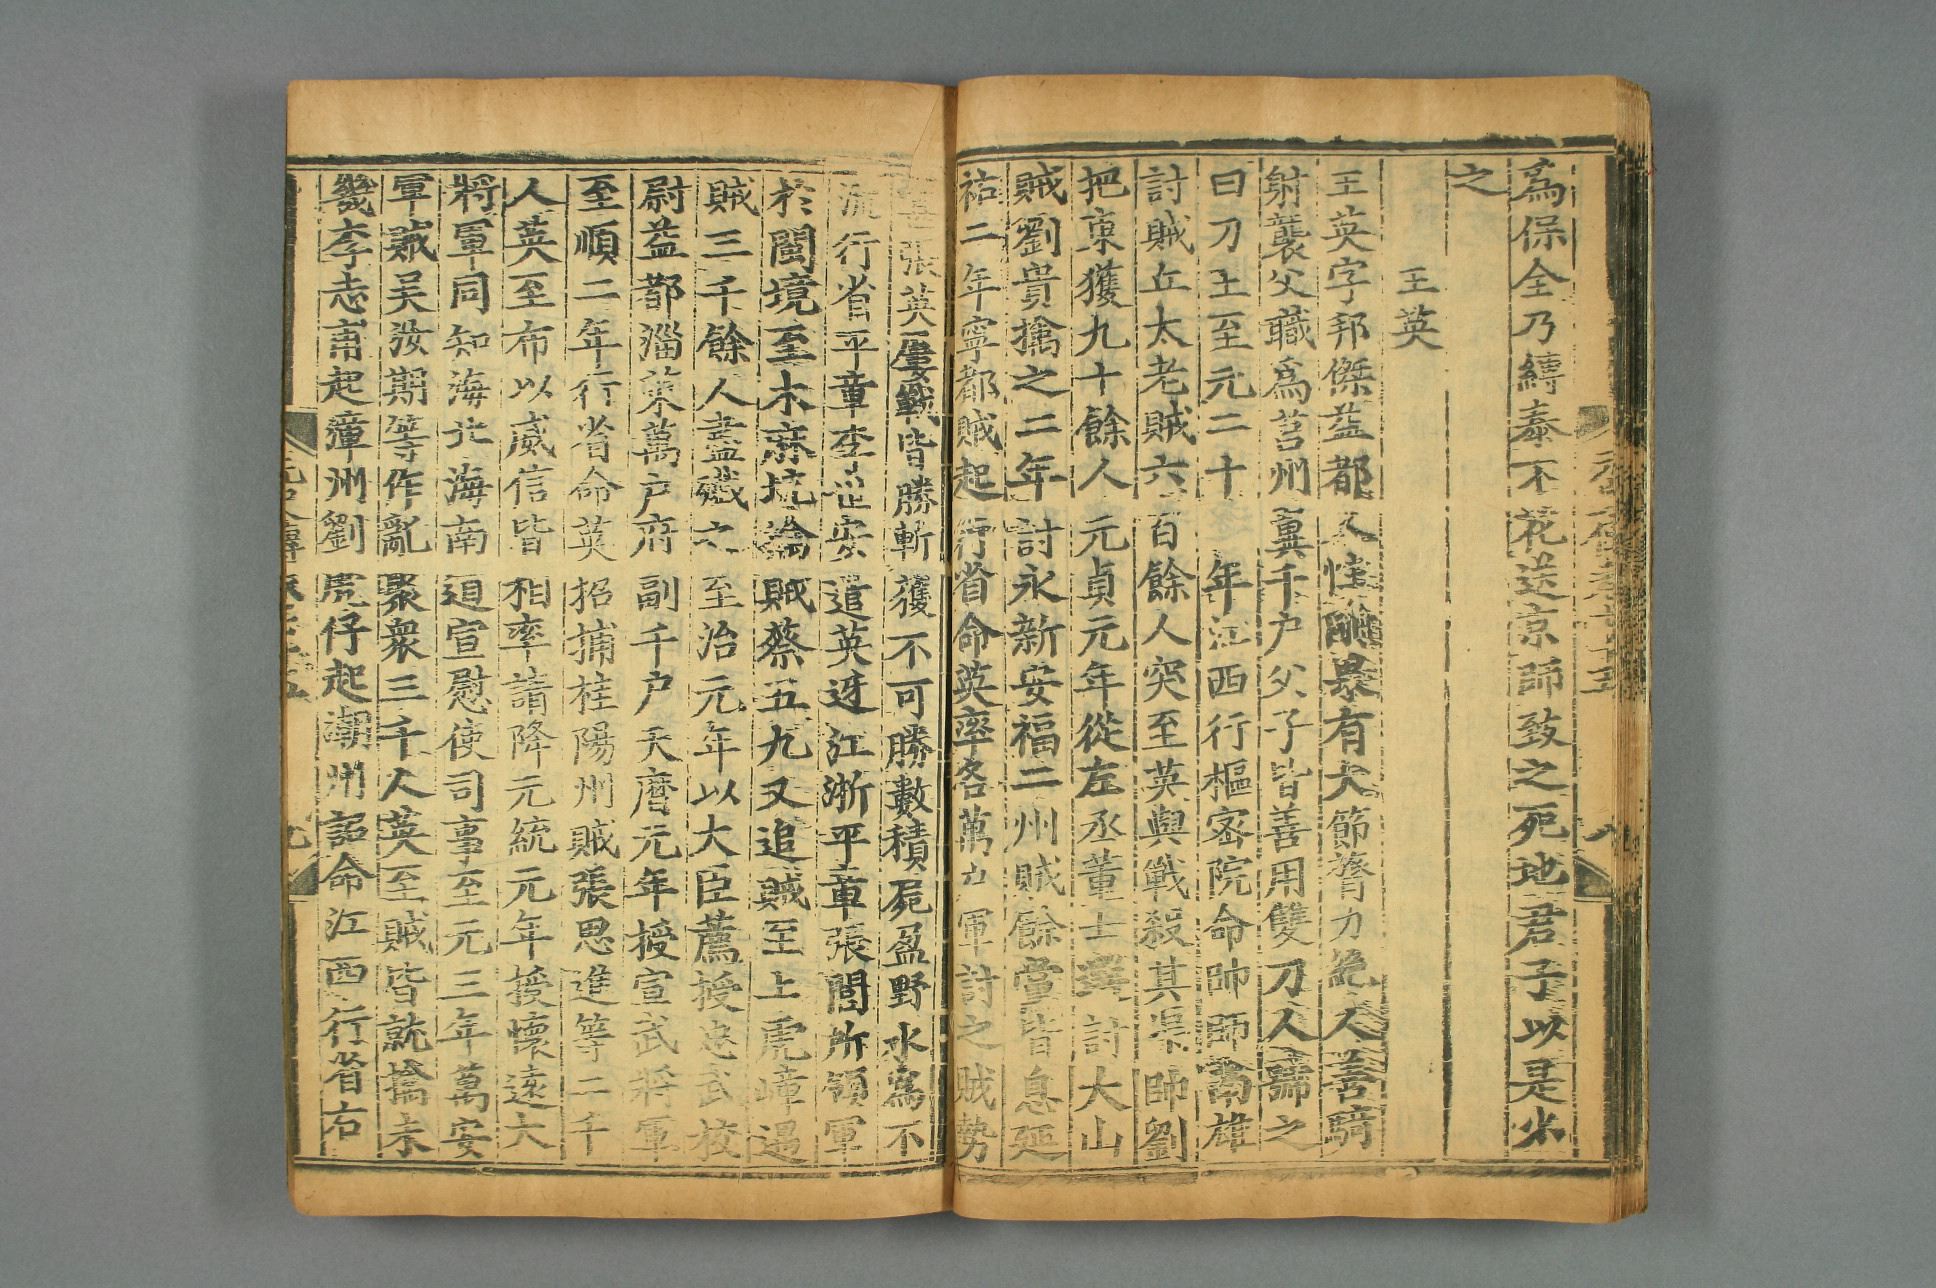 為保全乃縛泰不花送京師致之死地君子以是少
之
王英
王英字邦傑益都人性剛果有大節膂力絶人善騎
射襲父職爲莒州翼千户父子皆善用雙刀人號之
曰刀王至元二十 年江西行樞密院命帥師南雄
討賊丘太老賊六百餘人突至英與戰殺其渠帥劉
把東獲九十餘人元貞元年從左丞董士選討大山
賊劉貴擒之二年討永新安福二州賊餘黨皆息延
祐二年寧都賊起行省命英率各萬户軍討之賊勢
張英屢戰皆勝斬獲不可勝數積屍盈野水爲不
流行省平章李世安遣英迓江浙平章張閭所領軍
於閩境至木麻坑論賊蔡五九又追賊至上虎嶂遇
賊三千餘人盡殱之至治元年以大臣薦授忠武校
尉益都淄萊萬户府副千户天曆元年授宣武將軍
至順二年行省命英招捕桂陽州賊張思進等二千
人英至布以威信皆相率請降元統元年授懷遠大
將軍同知海北海南道宣慰使司事至元三年萬安
軍賊吳汝期等作亂聚衆三千人英至賊皆就擒未
幾李志甫起漳州劉虎仔起潮州詔命江西行省右